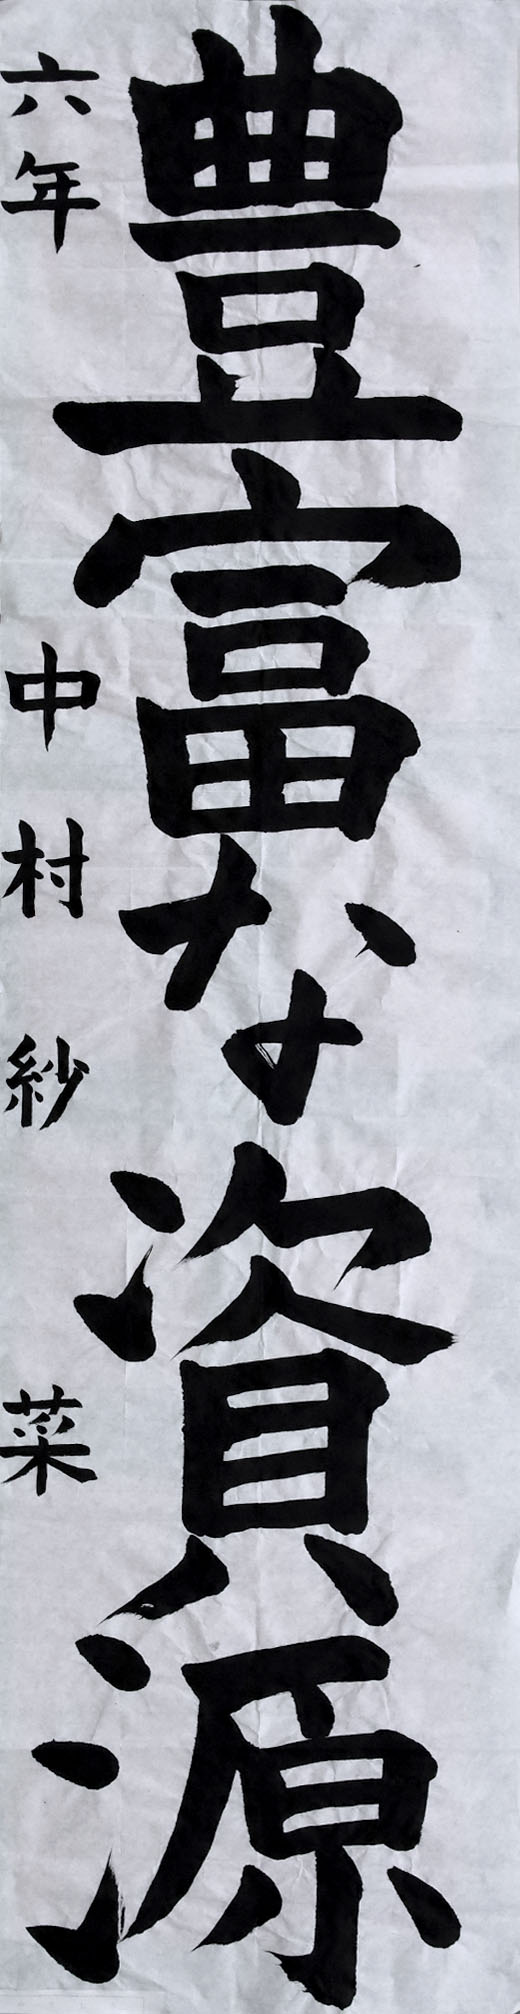 豊富な資源
六年 中村紗菜